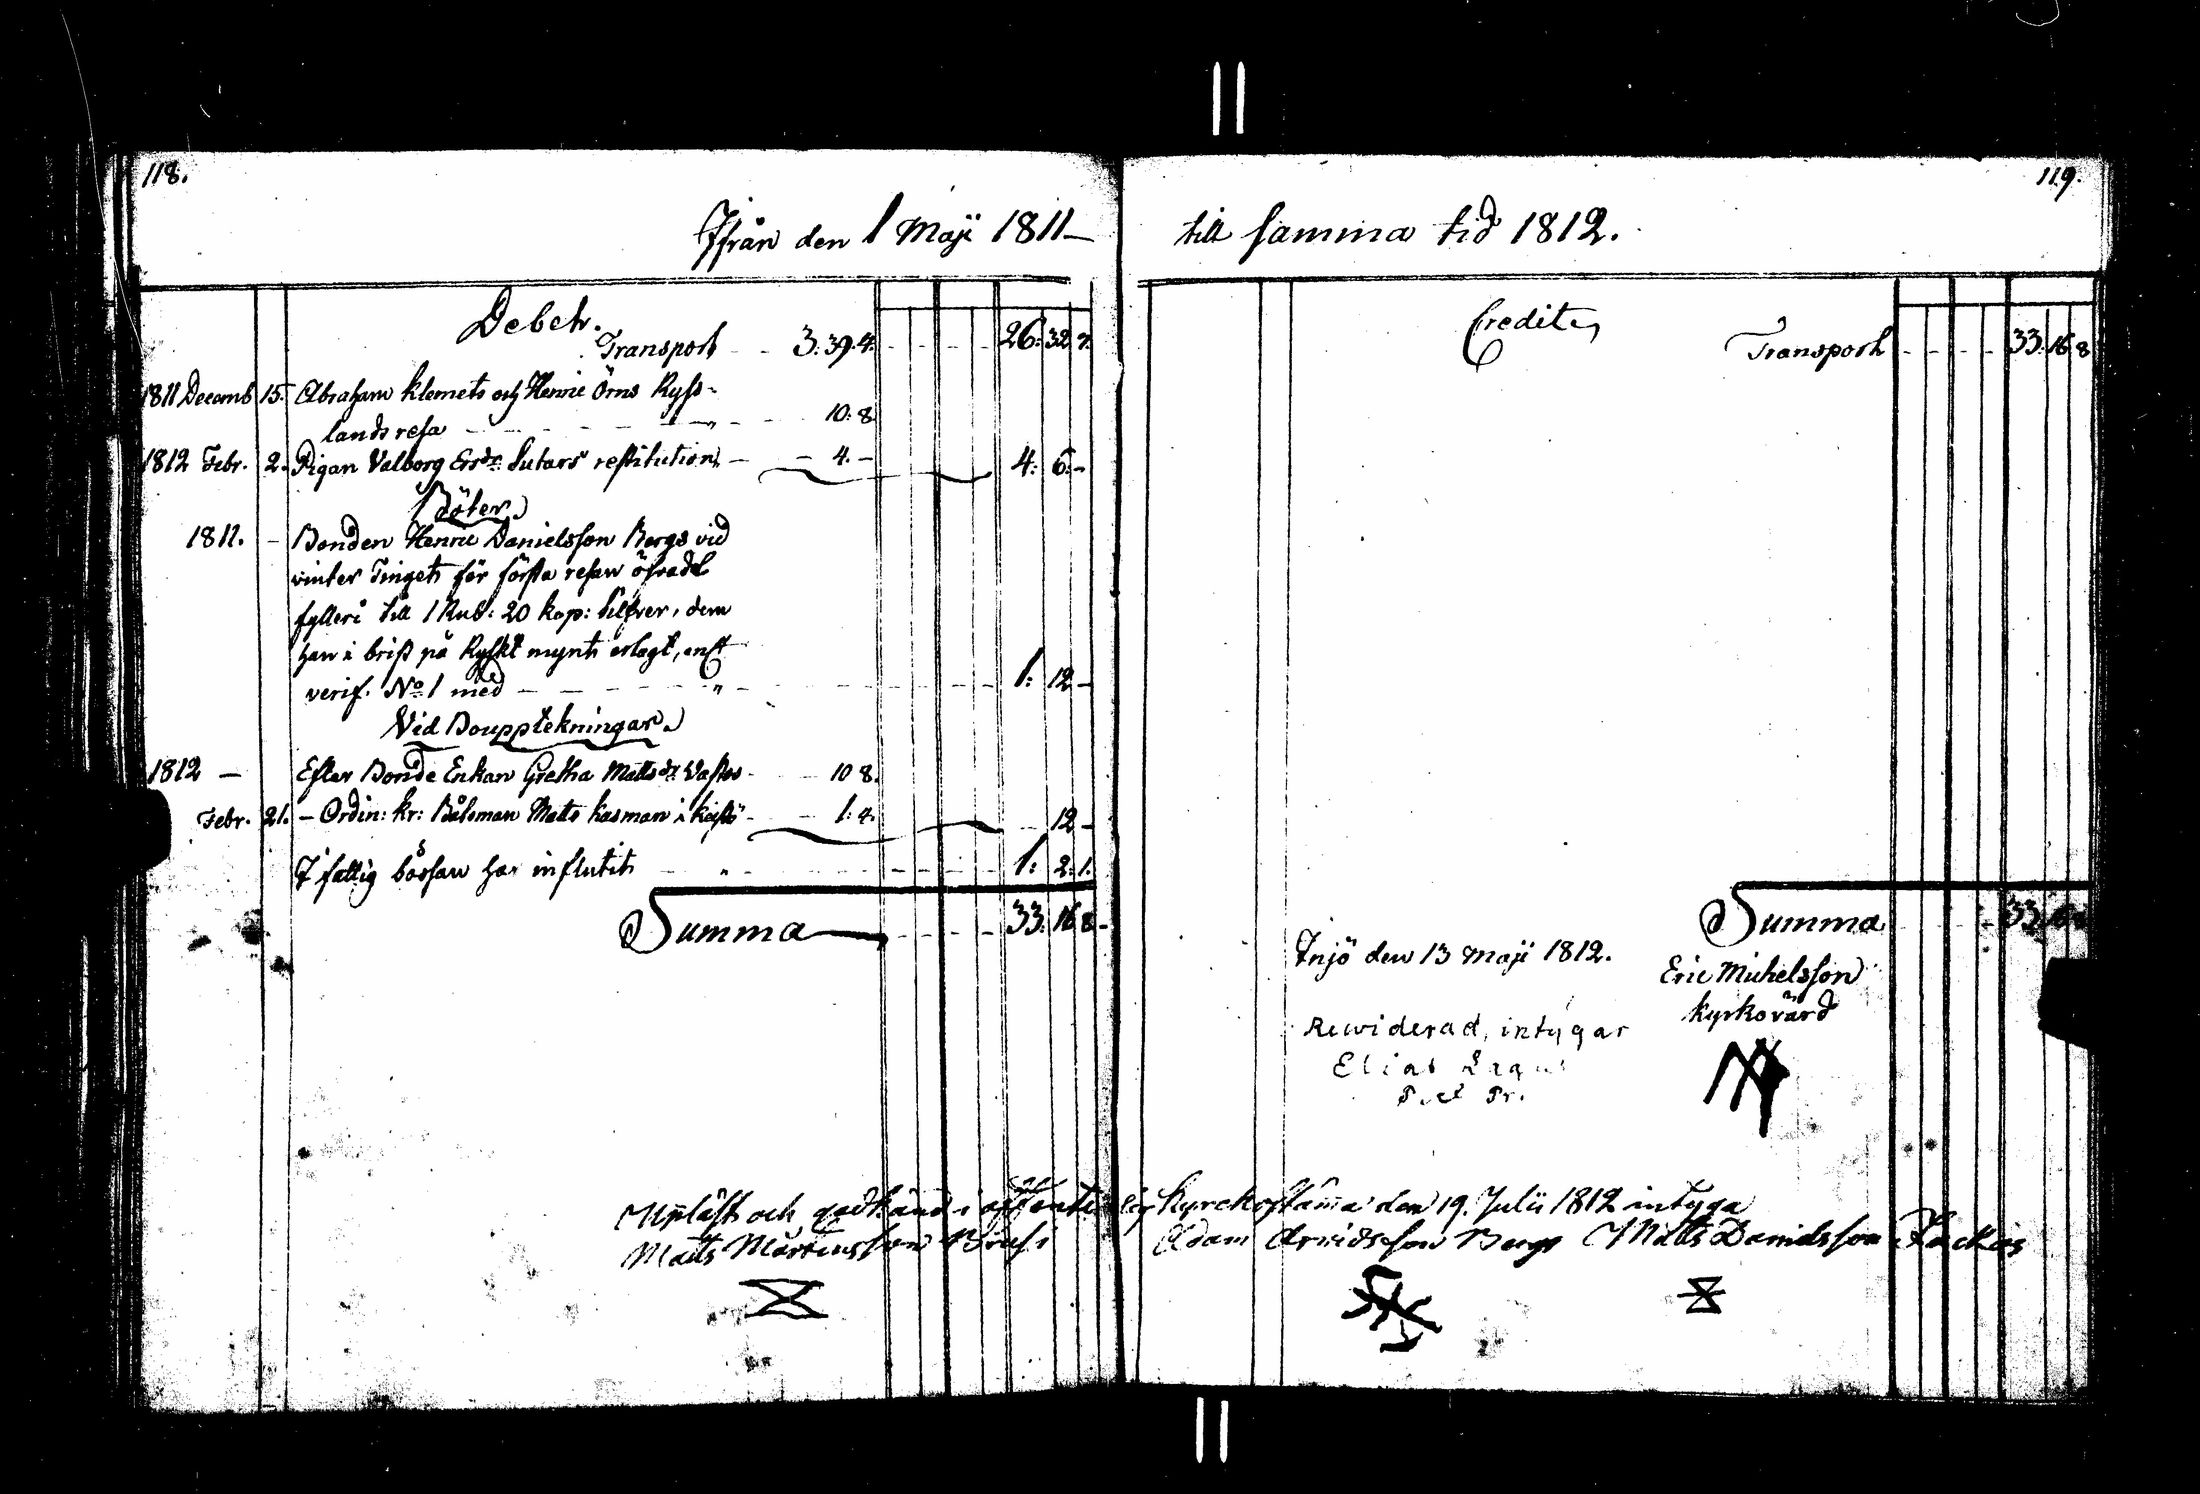 118.
Ifrån den 1 Maji 1811–
Debet.
Transport 3:39.4. 26:32.7.
1811 Decemb 15. Abraham Klemets och Henric Örns Ryss-
lands resa 10:8
1812 Febr. 2. Pigan Valborg Ersdr Sutars restitution 4.– 4:6.–
Böter
1811. – Bonden Henric Danielsson Bergs vid
vinter Tinget för första resan öfradt
fylleri till 1 Rub: 20 kop: Silfver, dem
han i brist på Ryskt mynt erlagt, enl
verif. No 1 med 1:12–
Vid Boupptekningar
1812 – Efter Bonde Enkan Gretha Mattsdr 10 8.
Febr. 21. – Ordin: kr: Båtsman Matts Kasman i 1:4. 12–
I fattig bössan har influtit 1:2:1.
Summa 33:16 8–
119.
till samma tid 1812.
Credit
Transport 33:16 8
Summa 33
den 13 Maji 1812.
Eric Michelsson
Kyrkovärd
Rewiderad, intygar
Elias
Pr.
Upläst och godkänd i offentelig Kyrckostäma den 19. Julii 1812 intyga
Matts Mårtensson Adam Arvidsson Bergs Matts Danielsson